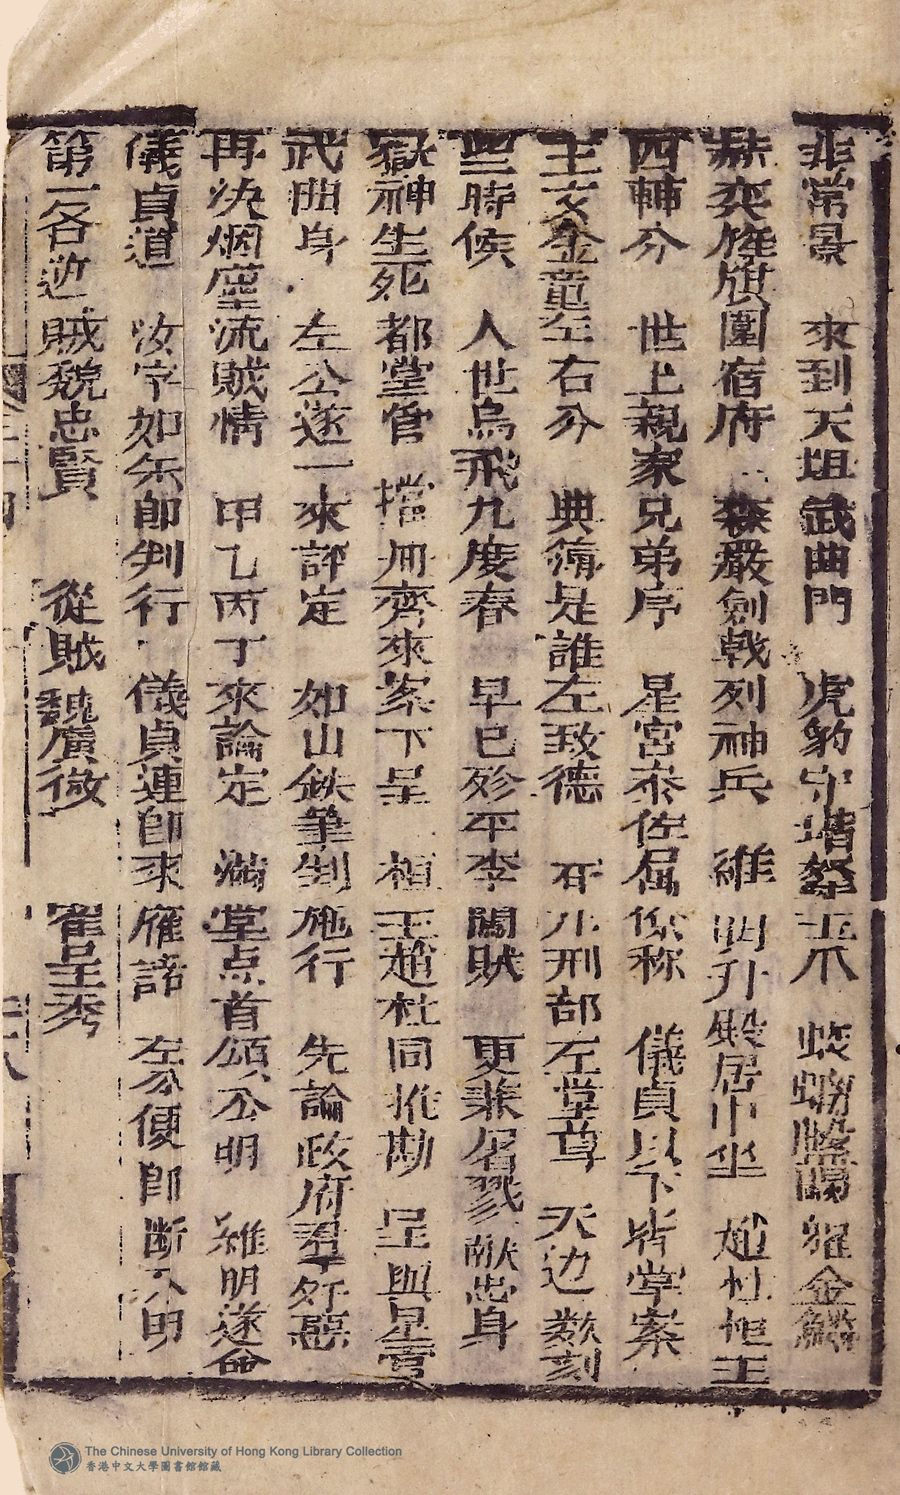 非常景　來到天坦武曲門　虎豹守堦祭玉爪　蛟螭盤礴耀金鱗
赫奕旌旗圍宿府　森嚴劍戟列神兵　維明升殿居中坐　趙杜桓王
四輔分　世上親家兄弟序　星宮泰佐屈你称　儀貞以下皆堂案
主文金童左右分　典簿是誰左致德　死八刑部左堂尊　天边数刻
些時候　人世烏飛九度春　早已殄平李闖賊　更兼屠戮献忠身
嶽神生死都堂管　擋冊齊來案下呈　桓王趙杜同推勘　呈與星宮
武曲身　左公遂一來評定　如山鉄筆判施行　先論政府羣奸惡
再決烟塵流賊情　甲乙丙丁來論定　滿堂点首頌公明　維明遂命
儀貞道　汝字如矢即判行　儀貞連即來雁諾　左公便即断分明
第一名逆賊魏忠賢　從賊魏廣微　崔呈秀
The Chinese University of Hong Kong Library Collection
香港中文大學圖書館館藏